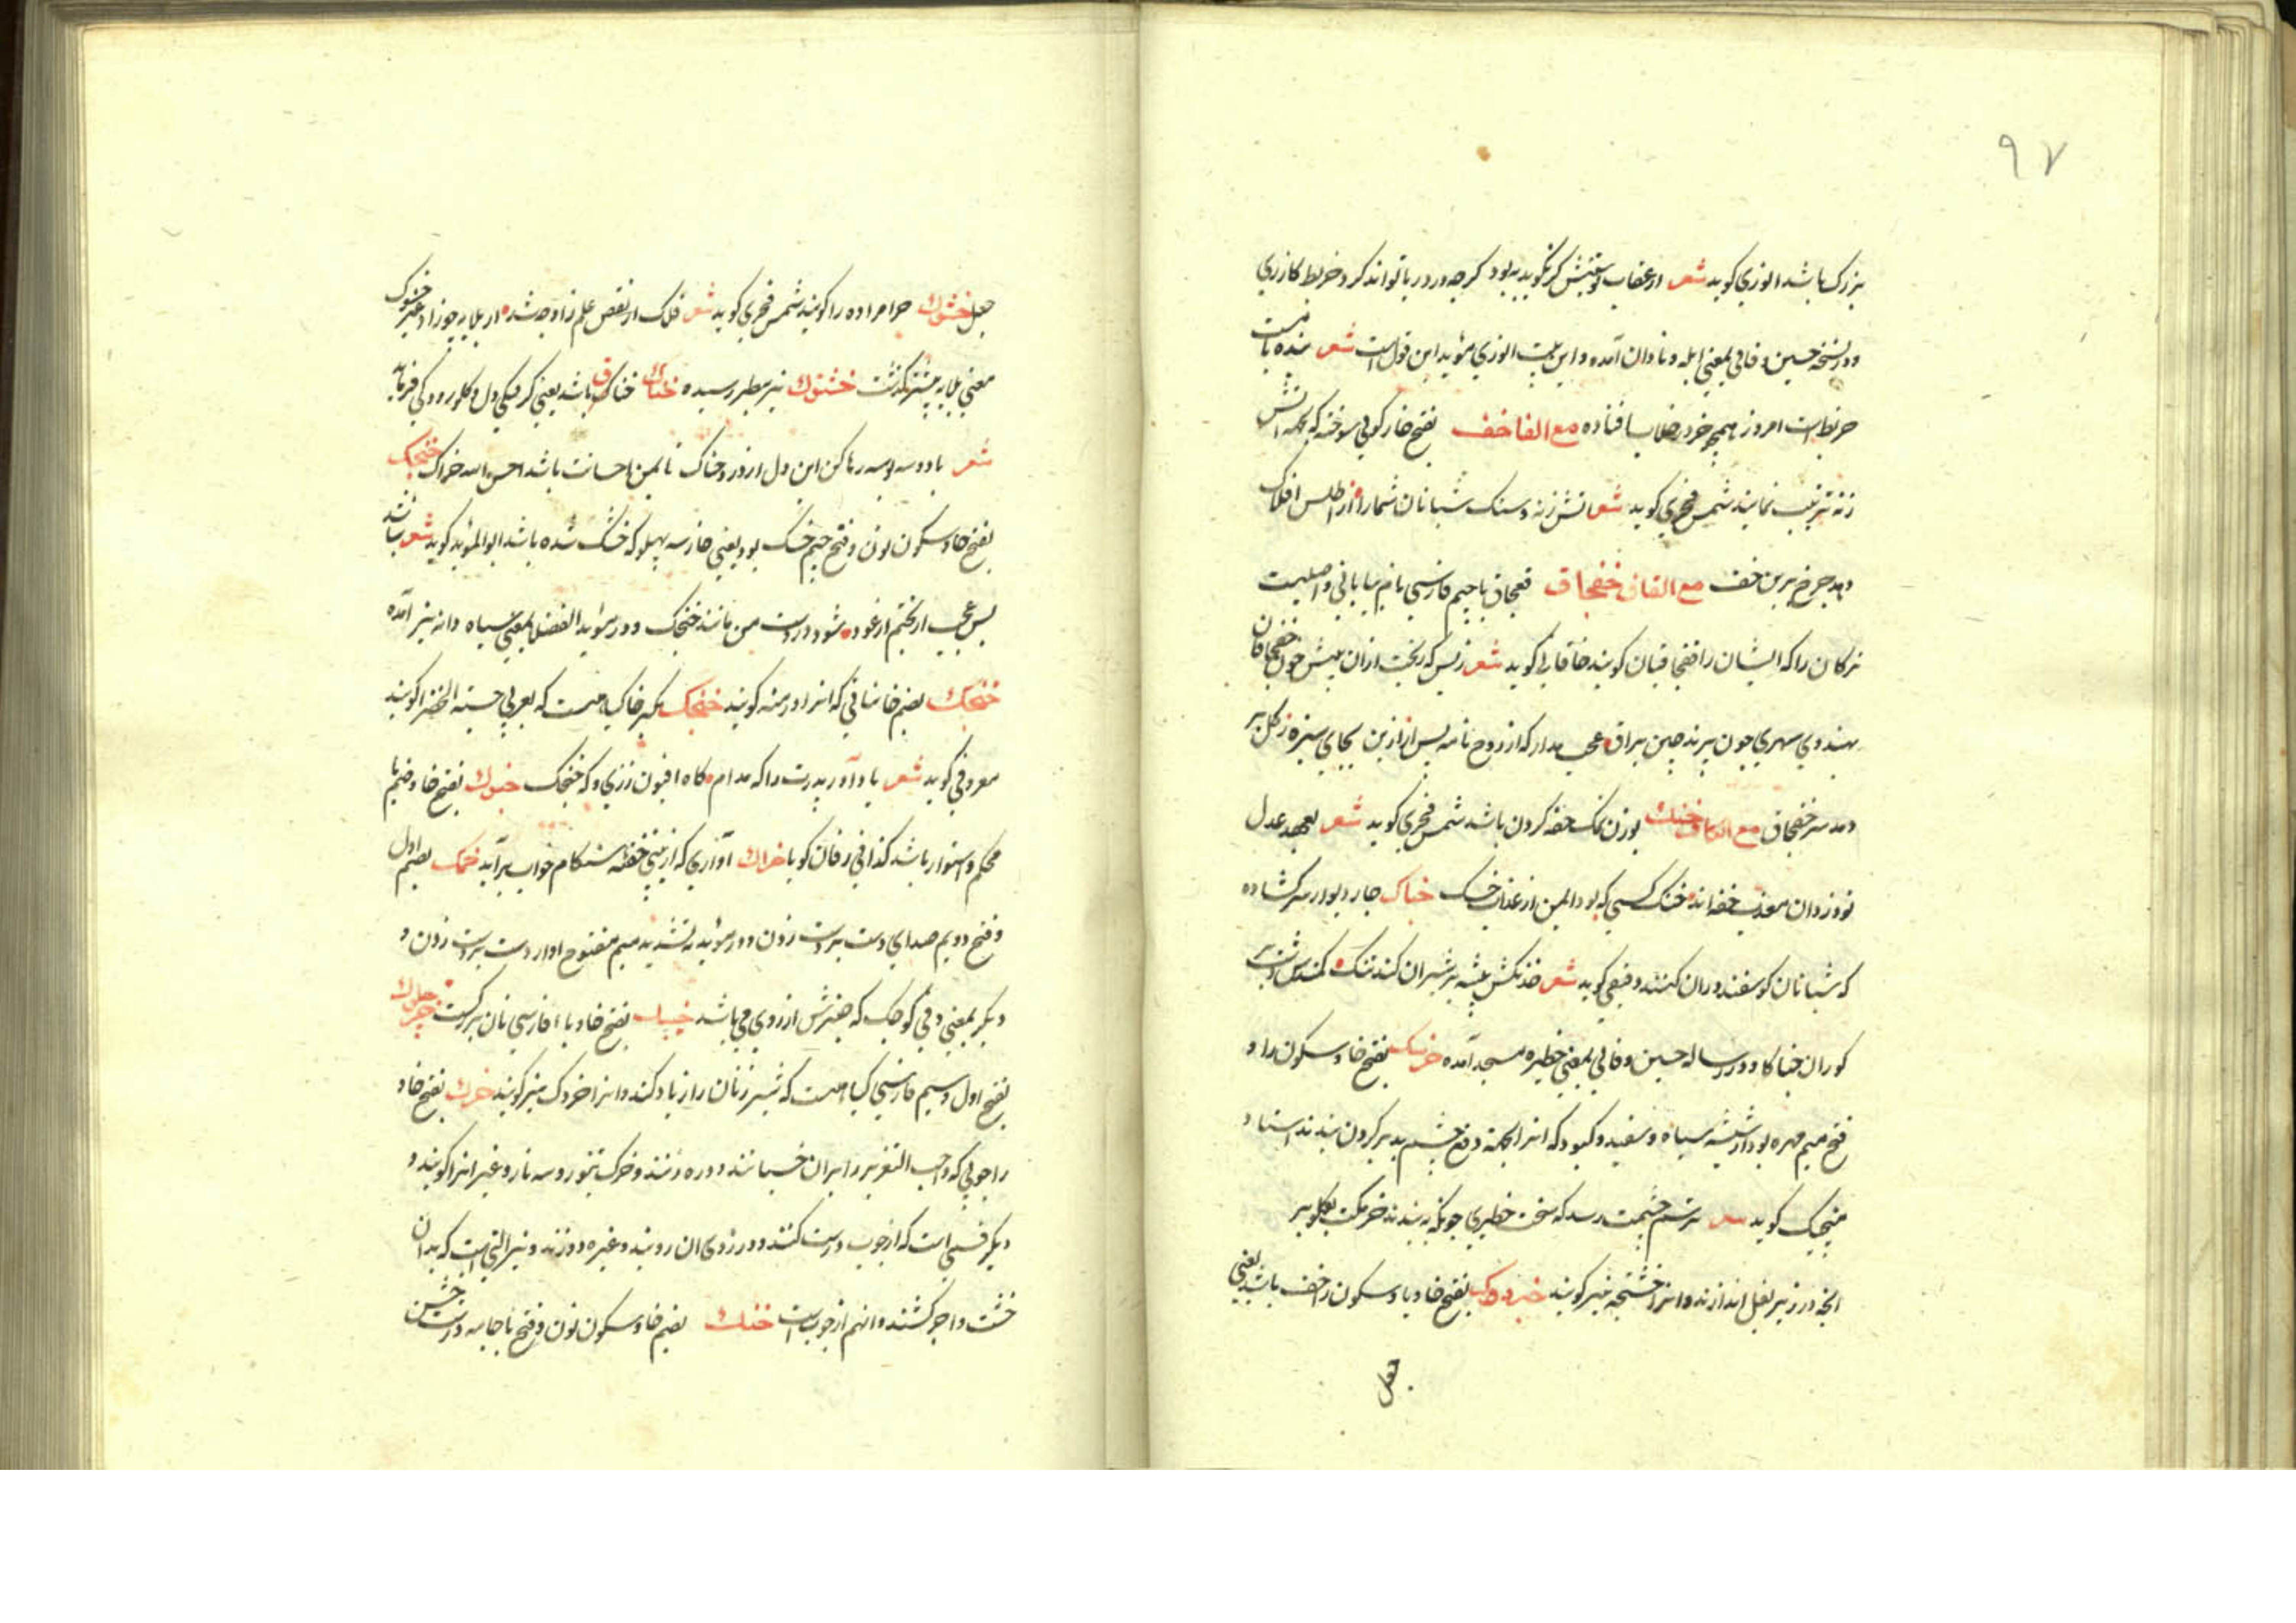 ۹۷
بزرک باشد انوری کوید شعر از عقاب پوستینش کر نکوید به بود کر چه در دریا تواند کرد خربط کازری
ودر نسخه حسین وفائی بمعنی ابله و نادان آمده و این بیت انوری مؤید این قول است شعر بنده با
خربط است امروز همچو خر در خلاب افتاده مع الفا خف بفتح خا رکوی سوخته که بجهة اتش
زنه ترتیب نمایند شمس فخری کوید شعر اتش زنه و سنک شبانان شما را از اطلس افلاک
دهد چرخ برین خف مع القاف خفجاق قفجاق با جیم فارسی نام بیابانی و اصلیست
ترکان را که ایشان را خفجاقیان کویند خاقانی کوید شعر زبس که ریخت ازان پیش خون خفجاقان
بهندوی سهری چون پرند چین براق عجب مدار که از روح نامیه پس ازین بجای سبزه ز کل بر
دمد سر خفجاق مع الکاف خبک بوزن نمک خفه کردن باشد شمس فخری کوید شعر بعهد عدل
تو دزدان معذب خفه اند خنک کسی که بود ایمن از عذاب خبک خباک چار دیوار سر کشاده
که شبانان کوسفند دران کنند دقیقی کوید شعر خدنکش بیشه بر شیران کند تنک کمندش دشت بر
کوران خباکا ودر رساله حسین وفائی بمعنی حظیره مسجد آمده خرمک بفتح خا و سکون را و
فتح میم مهره بود از شیشه سیاه و سفید و کبود که انرا بجهة دفع چشم بد بر کردن بندند استاد
منجیک کوید شعر ترسم چشمت رسد که سخت خطیری چونکه نه بندند خرمکت بکلو بر
انچه در زیر بغل اندازند و انرا خشتجه نیز کویند خبزدوک بفتح خا و با و سکون زا خف باشد یعنی
جعل
جعل خشوک حرامزاده را کویند شمس فخری کوید شعر فلک از نقص علم زاده چه شد از بلایه چو زاد غیر خشوک
معنی بلایه پیشتر کذشت خشنوک نیز بنظر رسیده خناک خناق باشد یعنی کرفتکی دل و کلو رودکی فرماید
شعر با دو سه بوسه رها کن این دل از درد خناک تا بمن احسانت باشد احسن الله جزاک خنجک
بفتح خا و سکون نون و فتح جیم خسک بود یعنی خار سه پهلو که خشک شده باشد ابو المؤید کوید شعر نباشد
بس عجب از بختم ار عود شود در دست من مانند خنجک ودر مؤید الفضلا بمعنی سیاه دانه نیز آمده
خنجک بضم خا نباتی که انرا درمنه کویند خفجک بکسر خا کیاهیست که بعربی حبة الخضرا کویند
معروفی کوید شعر یاد آور پدرت را که مدام کاه افیون زدی و که خنجک خبوک بفتح خا و ضم با
محکم و استوار باشد کذا فی زفان کویا خراک آوازی که از بینی خفته هنکام خواب برآید خمک بضم اول
و فتح دویم صدای دست بر دست زدن ودر مؤید به تشدید میم مفتوح اواز دست بر دست زدن و
دیکر بمعنی دفی کوچک که چنبرش از روی می باشد خبک بفتح خا و با ا فارسی نان بزرکست خرجلوک
بفتح اول و سیم فارسی کیاهیست که شیر زنان را زیاد کند و انرا خردک نیز کویند خرک بفتح خا و
را چوبی که واجب التعزیر را بران خسبانند و دره زنند و خرک تنبور و سه تار و غیر انرا کویند و
دیکر قسمی است که از چوب درست کنند و در روی ان رویند و غیره دوزند و نیز التی است که بدان
خشت و اجر کشند و انهم از چوب است خنک بضم خا و سکون نون و فتح با جامه درشت خشن